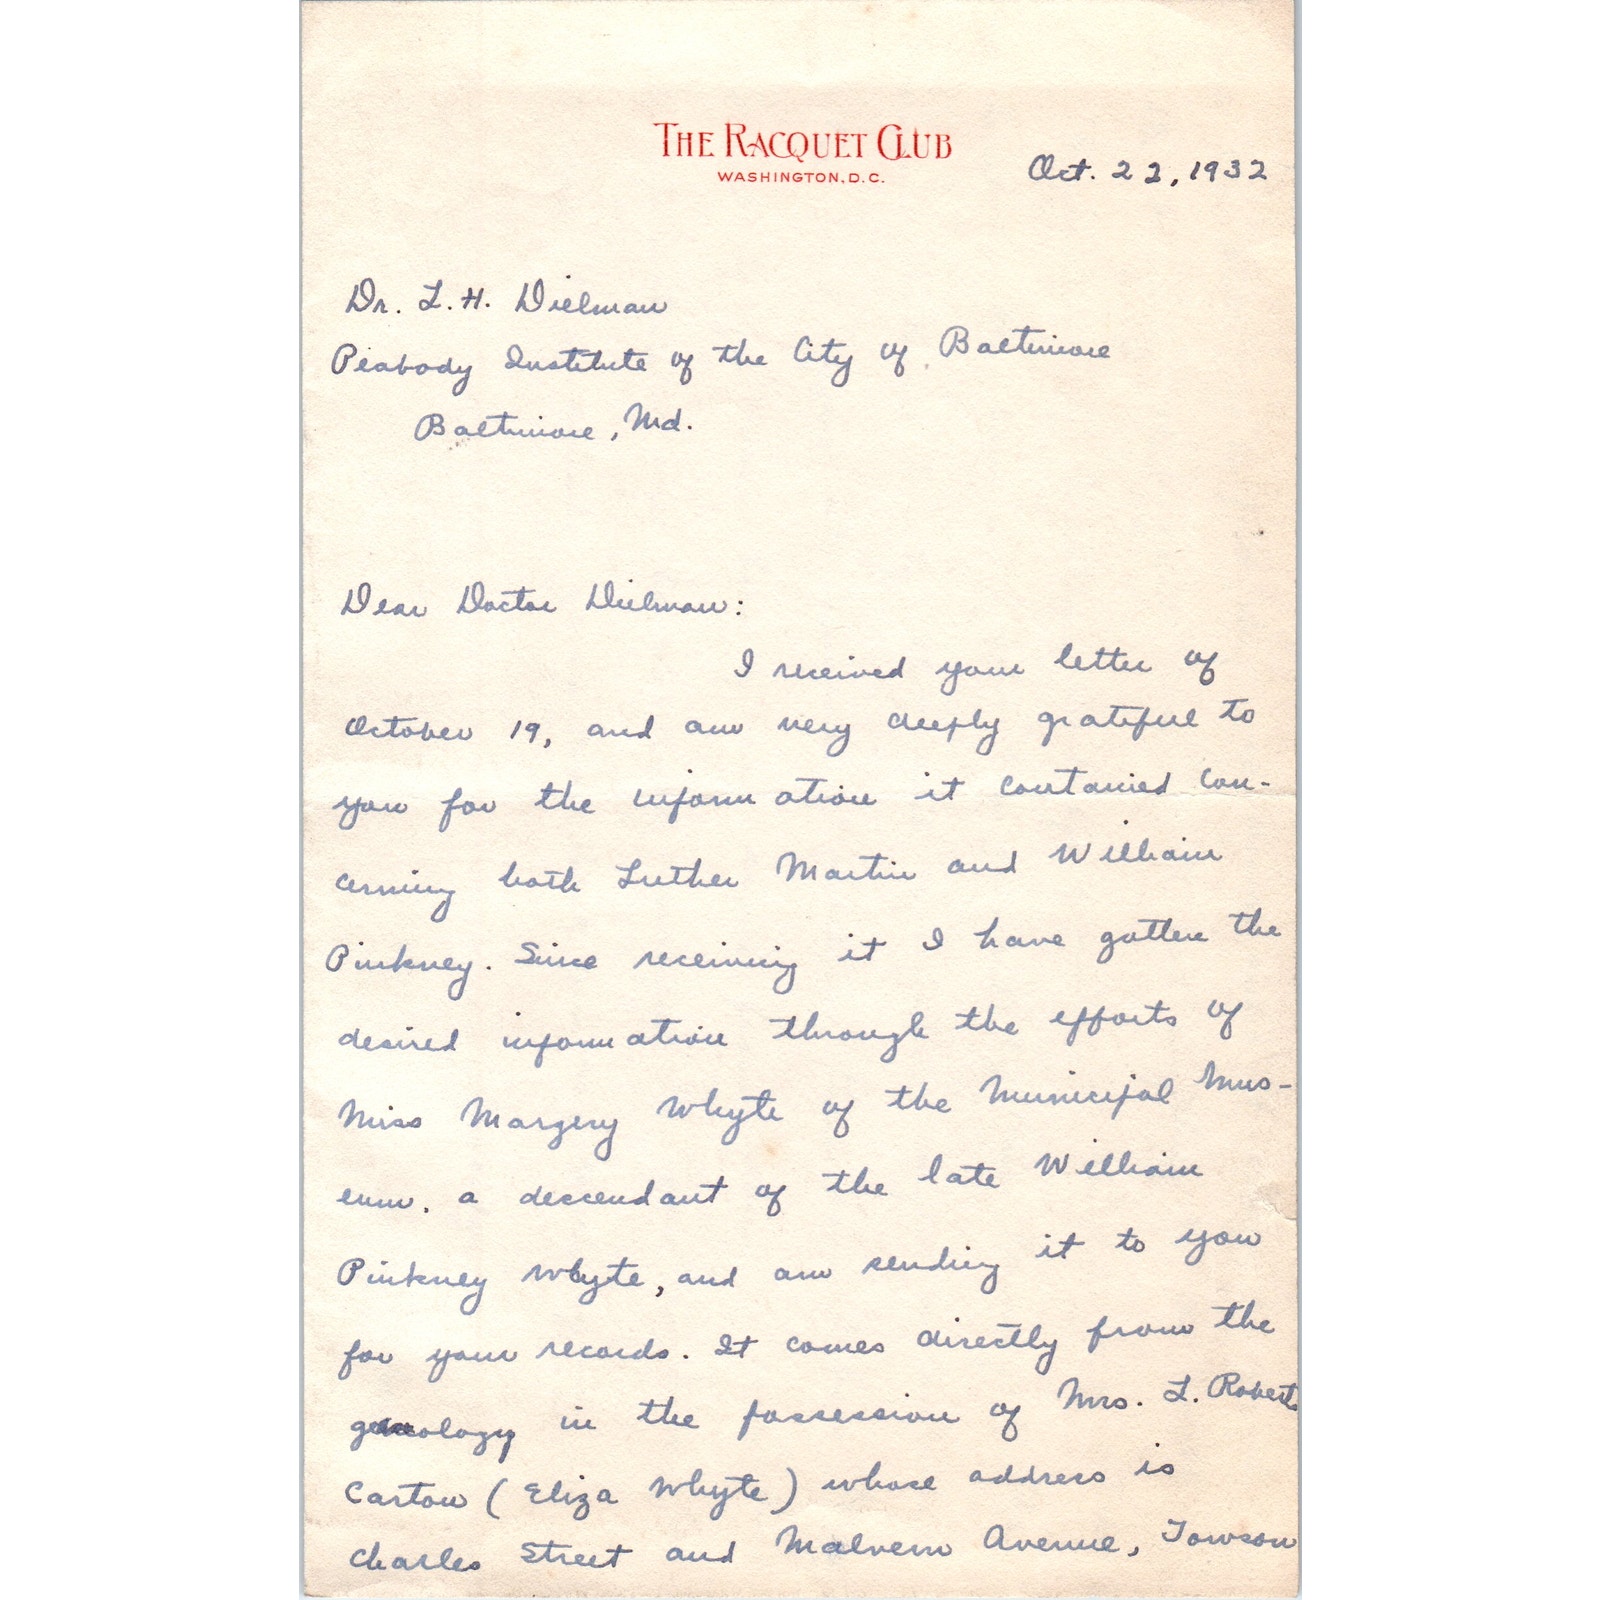 THE RACQUET CLUB
WASHINGTON, D.C.
Oct. 22, 1932
Dr. L. H. Dielman
Peabody Institute of the City of Baltimore
Baltimore, Md.
Dear Doctor Dielman:
I received your letter of
October 19, and am very deeply grateful to
you for the information it contained con-
cerning both Luther Martin and William
Pinkney. Since receiving it I have gotten the
desired information through the efforts of
Miss Margery Whyte of the Municipal Mus-
eum, a descendant of the late William
Pinkney Whyte, and am sending it to you
for your records. It comes directly from the
geneology in the possession of Mrs. L. Roberts
Carton (Eliza Whyte) whose address is
Charles Street and Malvern Avenue, Towson